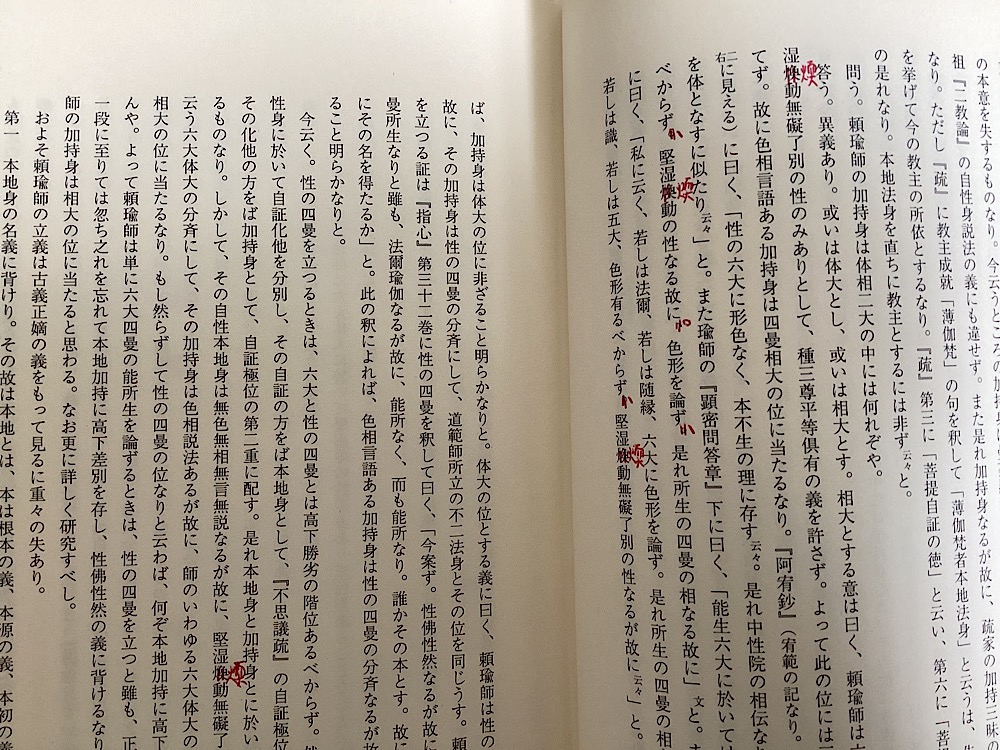 の本意を失するものなり。今云うところの加持身
祖『二教論』の自性身説法の義にも違せず。また是れ加持身なるが故に、疏家の加持三昧の
なり。ただし『疏』に教主成就「薄伽梵」の句を釈して「薄伽梵者本地法身」と云うは、
を挙げて今の教主の所依とするなり。『疏』第三に「菩提自証の徳」と云い、第六に「菩提
の是れなり。本地法身を直ちに教主とするには非ず云々。と。
問う。頼瑜師の加持身は体相二大の中には何れぞや。
答う。異義あり。或いは体大とし、或いは相大とす。相大とする意は曰く、頼瑜師は
湿煥動無礙了別の性のみありとして、種三尊平等倶有の義を許さず。よって此の位には
煗
てず。故に色相言語ある加持身は四曼相大の位に当たるなり。『阿宥鈔』(宥範の記なり。
右に見える)に曰く、「性の六大に形色なく、本不生の理に存す云々。是れ中性院の相伝な
を体となすに似たり云々」と。また瑜師の『顕密問答章』下に曰く、「能生六大に於いては
べからず。堅湿煥動の性なる故に。色形を論ず。是れ所生の四曼の相なる故に」文と。ま
煗
に曰く、「私に云く、若しは法爾、若しは随縁、六大に色形を論ず。是れ所生の四曼の
若しは識、若しは五大、色形有るべからず。堅湿煥動無礙了別の性なるが故に云々」と。
煗
ば、加持身は体大の位に非ざること明らかなりと。体大の位とする義に曰く、頼瑜師は性の
故に、その加持身は性の四曼の分斉にして、道範師所立の不二法身とその位を同じうす。頼
を立つる証は『指心』第三十二巻に性の四曼を釈して曰く、「今案ず。性佛性然なるが故に
曼所生なりと雖も、法爾瑜伽なるが故に、能所なく、而も能所なり。誰かその本とす。故に
にその名を得たるか」と。此の釈によれば、色相言語ある加持身は性の四曼の分斉なるが故
ること明らかなりと。
今云く。性の四曼を立つるときは、六大と性の四曼とは高下勝劣の階位あるべからず。
性身に於いて自証化他を分別し、その自証の方をば本地身として、『不思議疏』の自証極位
その化他の方をば加持身として、自証極位の第二重に配す。是れ本地身と加持身とに於い
るものなり。しかして、その自性本地身は無色無相無言無説なるが故に、堅湿煥動無礙了
煗
云う六大体大の分斉にして、その加持身は色相説法あるが故に、師のいわゆる六大体大の
相大の位に当たるなり。もし然らずして性の四曼の位なりと云わば、何ぞ本地加持に高下
んや。よって頼瑜師は単に六大四曼の能所生を論ずるときは、性の四曼を立つと雖も、正
一段に至りては忽ち之れを忘れて本地加持に高下差別を存し、性佛性然の義に背けるなり
師の加持身は相大の位に当たると思わる。なお更に詳しく研究すべし。
およそ頼瑜師の立義は古義正嫡の義をもって見るに重々の失あり。
第一　本地身の名義に背けり。その故は本地とは、本は根本の義、本源の義、本初の義